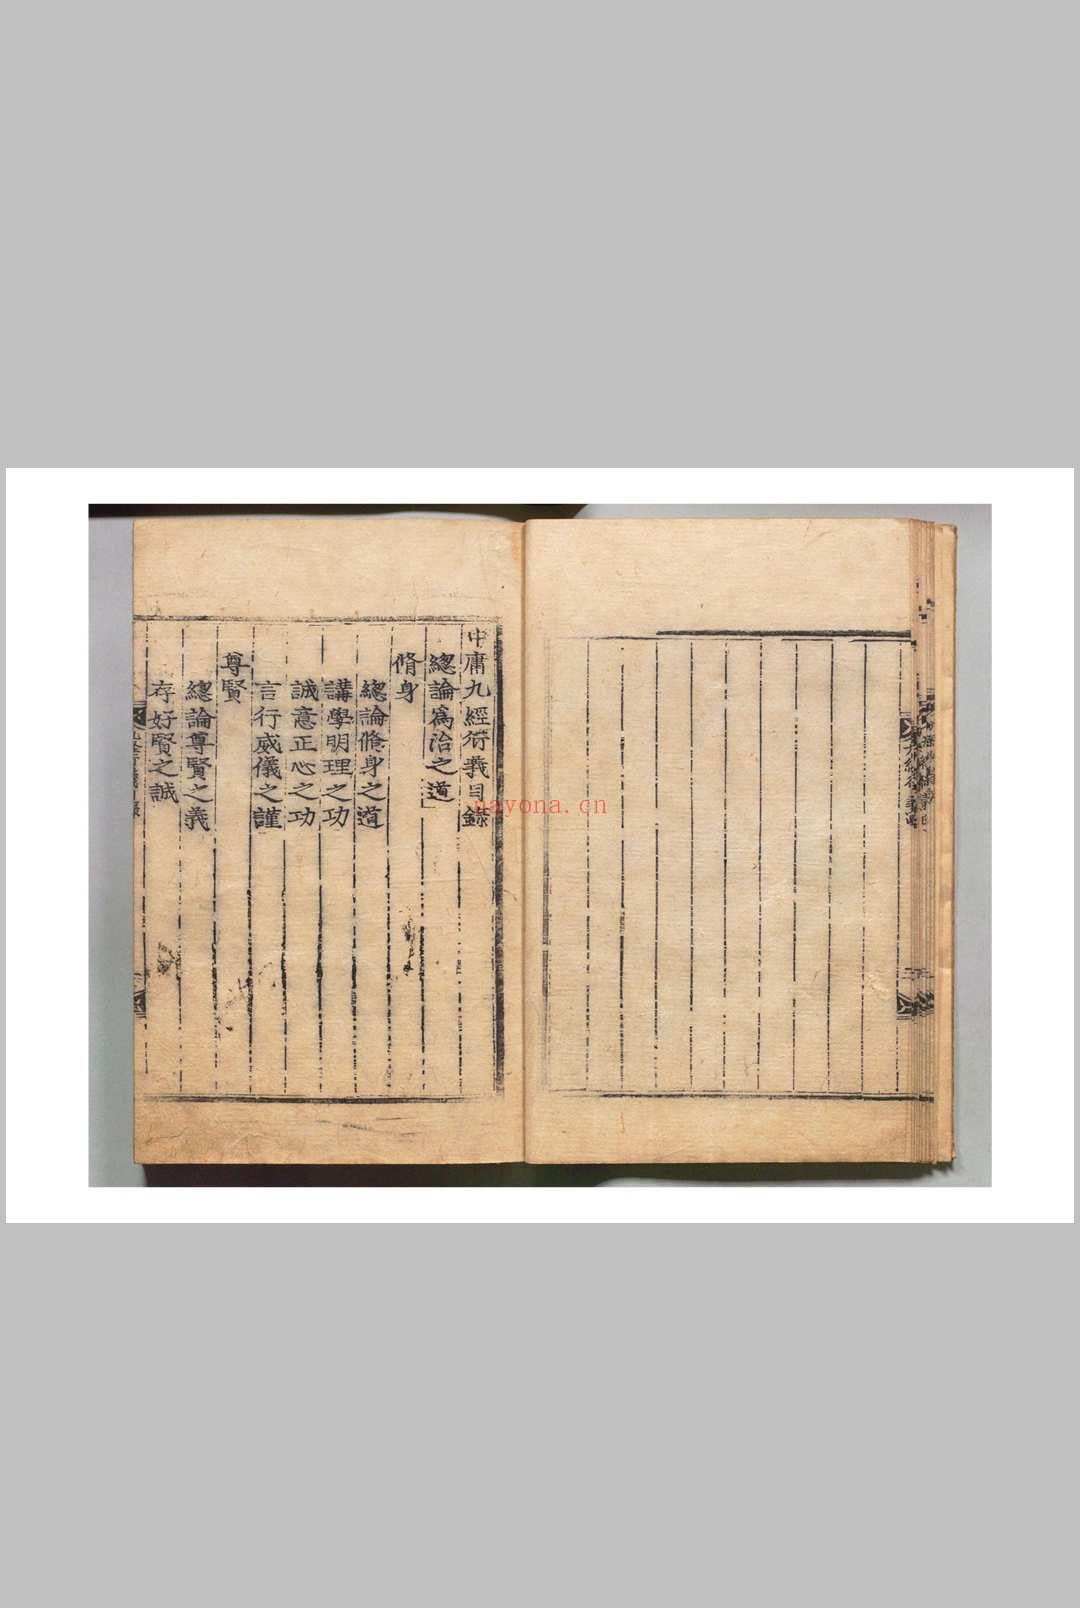 中庸九經衍義目錄
總論爲治之道
脩身
總論脩身之道
講學明理之功
誠意正心之功
言行威儀之謹
尊賢
總論尊賢之義
存好賢之誠
nayona.cn